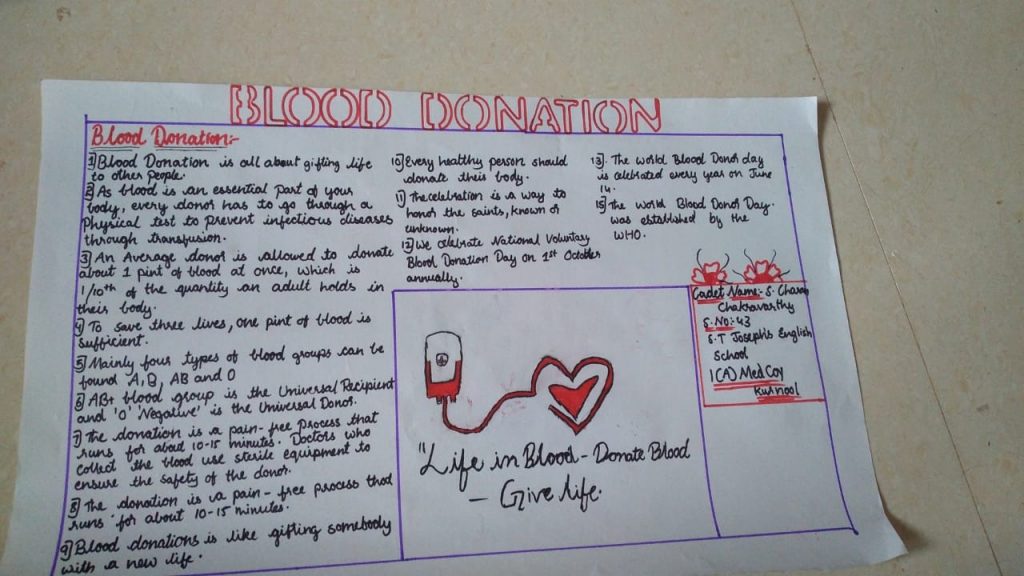 BLOOD DONATION
Blood Donation:-
1] Blood Donation is all about gifting life
to other people.
2] As blood is an essential part of your
body, every donor has to go through a
Physical test to prevent infectious diseases
through transfusion.
3] An Average donor is allowed to donate
about 1 pint of blood at once, which is
1/10th of the quantity an adult holds in
their body.
4] To save three lives, one pint of blood is
sufficient.
5] Mainly four types of blood groups can be
found A, B, AB and O
6] AB+ blood group is the Universal Recipient
and 'O' Negative' is the Universal Donor.
7] The donation is a pain-free process that
runs for about 10-15 minutes. Doctors who
collect the blood use sterile equipment to
ensure the safety of the donor.
8] The donation is a pain-free process that
runs for about 10-15 minutes.
9] Blood donations is like gifting somebody
with a new life.
10] Every healthy person should
donate their body.
11] The celebration is a way to
honor the saints, known or
unknown.
12] We celebrate National Voluntary
Blood Donation Day on 1st October
annually.
13]. The world Blood Donor day
is celebrated every year on June
14.
15]. The world Blood Donor Day.
was established by the
WHO.
Cadet Name:- S. Charan
Chakravarthy
S. No:- 43
S.T Joseph's English
School
1(A) Med Coy
Kurnool
"Life in Blood - Donate Blood
- Give life.